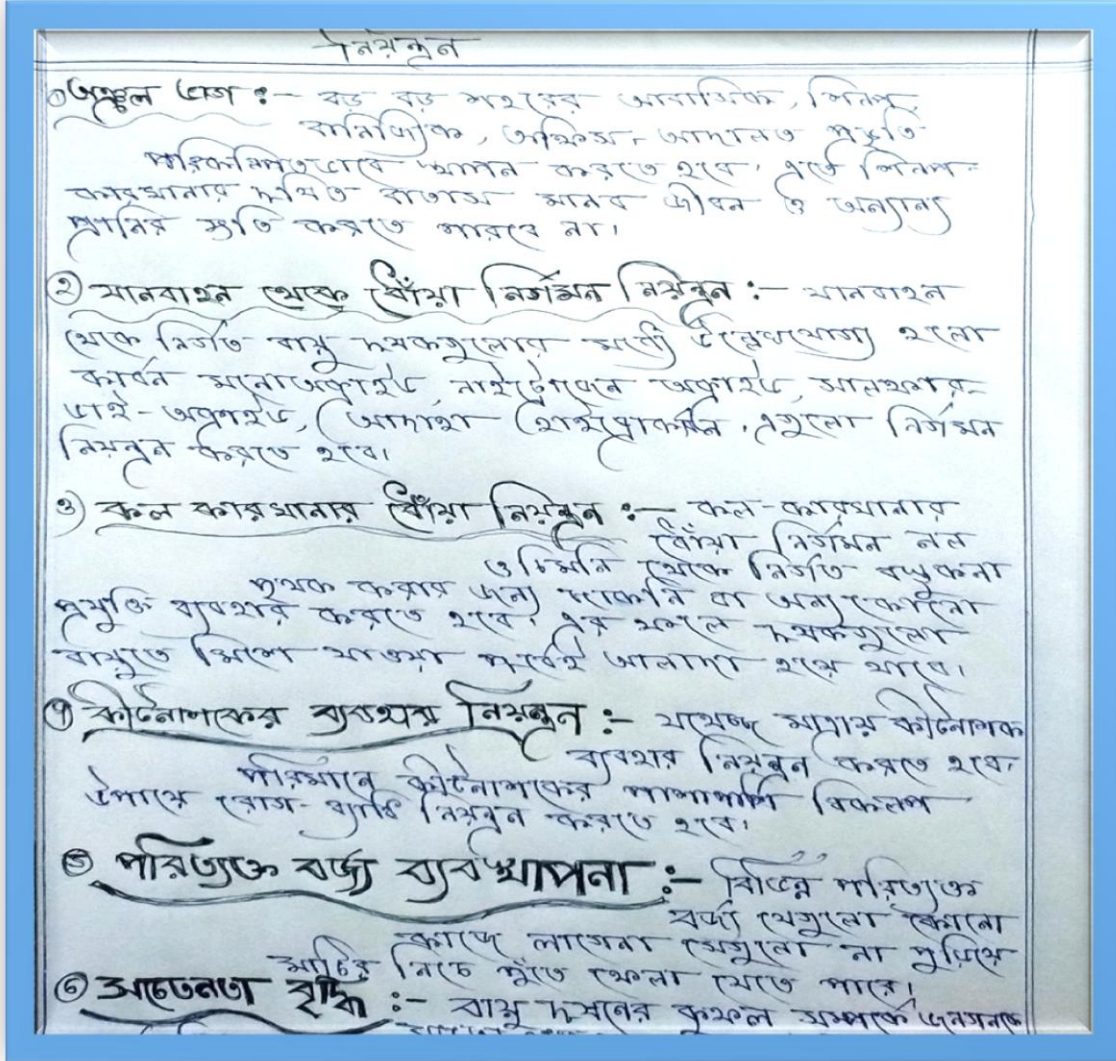 নিয়ন্ত্রন
১) অঞ্চল ভাগ :- বড় বড় শহরের আবাসিক, শিল্প,
বানিজ্যিক, অফিস, আদালত প্রভৃতি
পরিকল্পিতভাবে স্থাপন করতে হবে, এতে শিল্প-
কারখানার দূষিত বাতাস মানব জীবন ও অন্যান্য
প্রানির ক্ষতি করতে পারবে না।
২) যানবাহন থেকে ধোঁয়া নির্গমন নিয়ন্ত্রন :- যানবাহন
থেকে নির্গত বায়ু দূষকগুলোর মধ্যে উল্লেখযোগ্য হলো
কার্বন মনোঅক্সাইড নাইট্রোজেন অক্সাইড, সালফার-
ডাই-অক্সাইড, হাইড্রোকার্বন, এগুলো নির্গমন
নিয়ন্ত্রন করতে হবে।
৩) কল কারখানার ধোঁয়া নিয়ন্ত্রন :- কল-কারখানার
ধোঁয়া নির্গমন নল
ও চিমনি থেকে নির্গত বস্তুকনা
পৃথক করার জন্যে ছাকনি বা অন্যকোনো
প্রযুক্তি ব্যবহার করতে হবে, এর ফলে দূষকগুলো
বায়ুতে মিশে যাওয়া পূর্বেই আলাদা হয়ে যাবে।
৪) কীটনাশকের ব্যবহার নিয়ন্ত্রন :- যথেচ্ছ মাত্রায় কীটনাশক
ব্যবহার নিয়ন্ত্রন করতে হবে,
পরিমানে কীটনাশকের পাশাপাশি বিকল্প
উপায়ে রোগ-ব্যাধি নিয়ন্ত্রন করতে হবে।
৫) পরিত্যক্ত বর্জ্য ব্যবস্থাপনা :- বিভিন্ন পরিত্যক্ত
বর্জ্য যেগুলো কোনো
কাজে লাগেনা সেগুলো না পুড়িয়ে
মাটির নিচে পুঁতে ফেলা যেতে পারে।
৬) সচেতনতা বৃদ্ধি :- বায়ু দূষনের কুফল সম্পর্কে জনগনকে